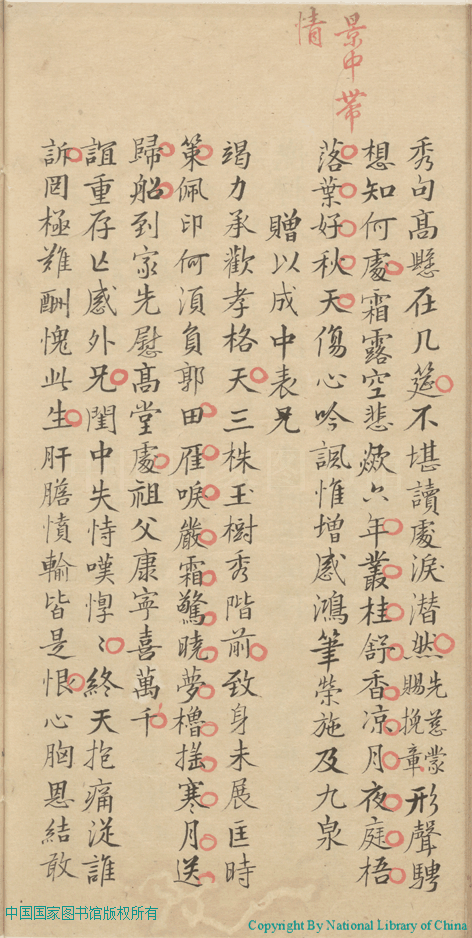 景中帶
情
秀句高懸在几筵不堪讀處淚潸然先慈蒙賜挽章形聲騁
想知何處霜露空悲歘六年叢桂舒香凉月夜庭梧
落葉好秋天傷心吟諷惟增感鴻筆榮施及九泉
贈以成中表兄
竭力承歡孝格天三株玉樹秀階前致身未展匡時
策佩印何須負郭田雁唳嚴霜驚曉夢櫓搖寒月送
歸船到家先慰髙堂處祖父康寧喜萬千
誼重存亡感外兄閨中失恃嘆惸〻終天抱痛從誰
訴罔極難酬愧此生肝膽憤輸皆是恨心胸恩結敢
中国国家图书馆版权所有
Copyright By National Library of China